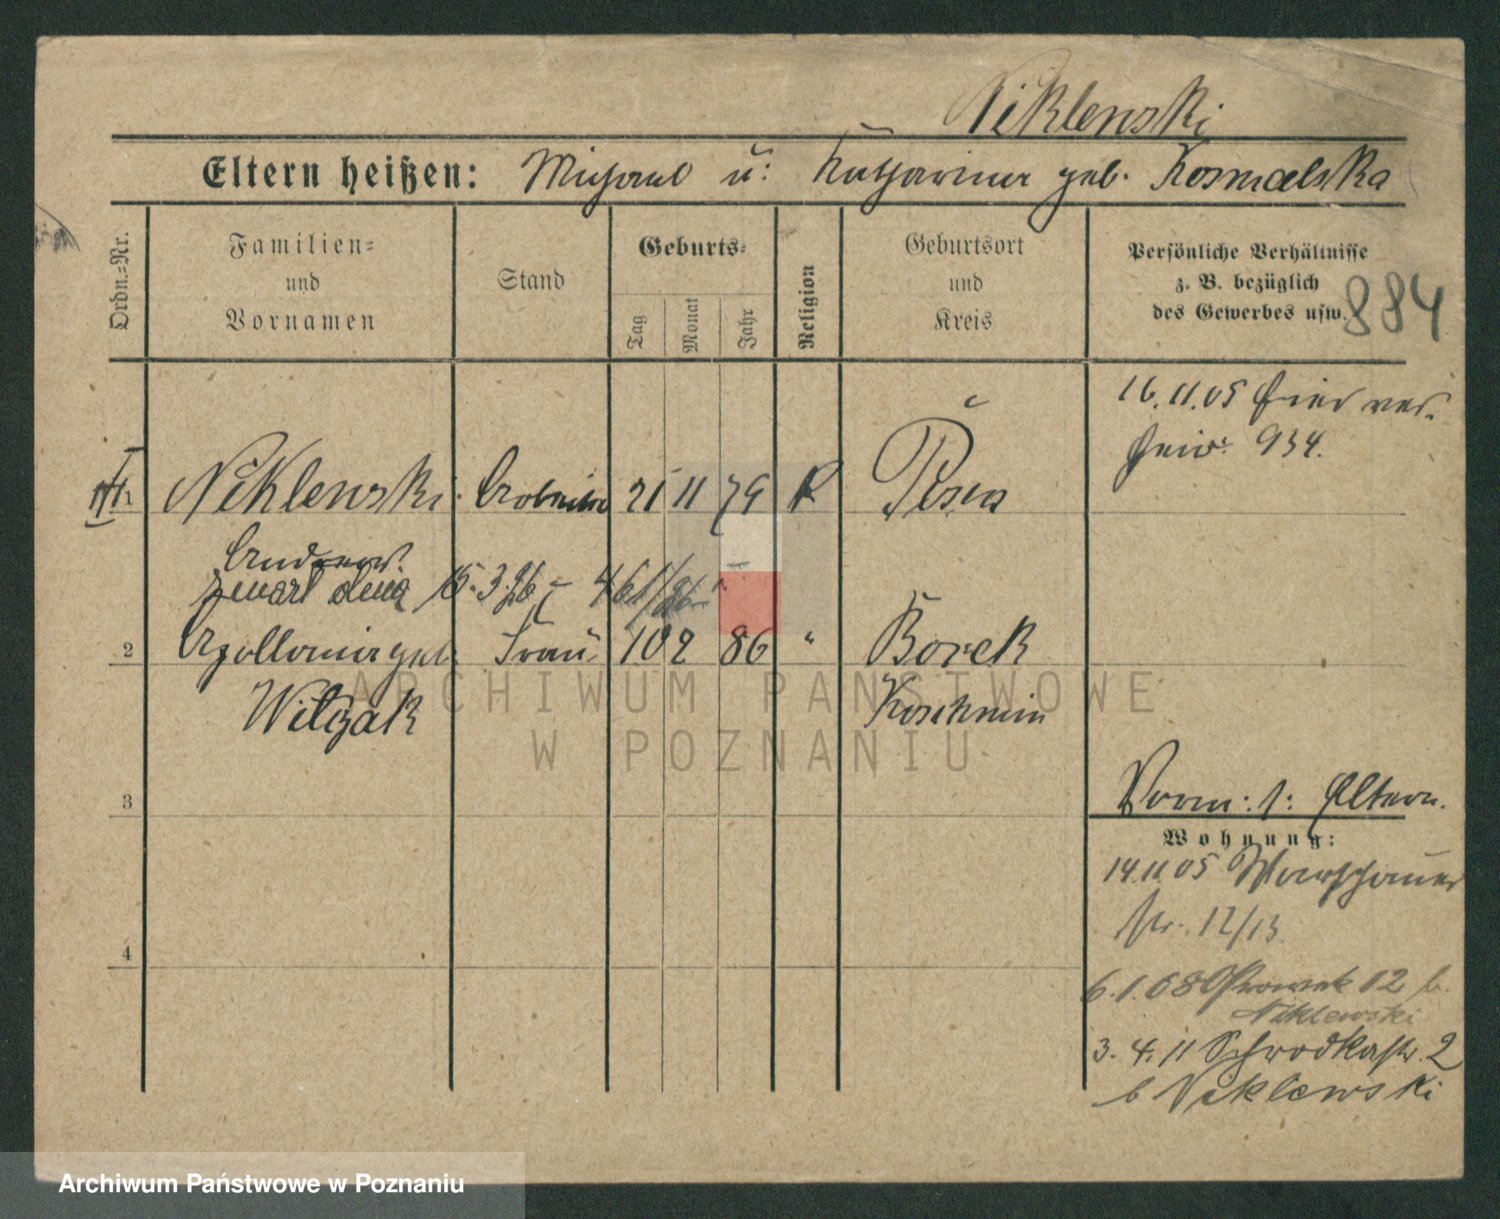 Niklewski
Eltern heißen: Michael u: Katharina geb. Kosmalska
Ordn.-Nr.
Familien-
und
Vornamen
Stand
Geburts-
Tag
Monat
Jahr
Religion
Geburtsort
und
Kreis
Persönliche Verhältnisse
z. B. bezüglich
des Gewerbes usw.
884
16.11.05 hier ver-
heir. 934.
1 Niklewski Arbeiter 21 11 79 K Posen
Andreas.
zmarł dnia 15.3.26 - 461/26
2 Apollonia geb. Frau 10 2 86 " Borek
Witczak Koschmin
3
4
Vorm: 1: Eltern.
Wohnung:
14.11.05 Warschauer
str. 12/13
6.1.08 Ostrowek 12 b.
Niklewski
3. 4. 11 Schrodkastr. 2
b Niklewski
ARCHIWUM PAŃSTWOWE
W POZNANIU
Archiwum Państwowe w Poznaniu